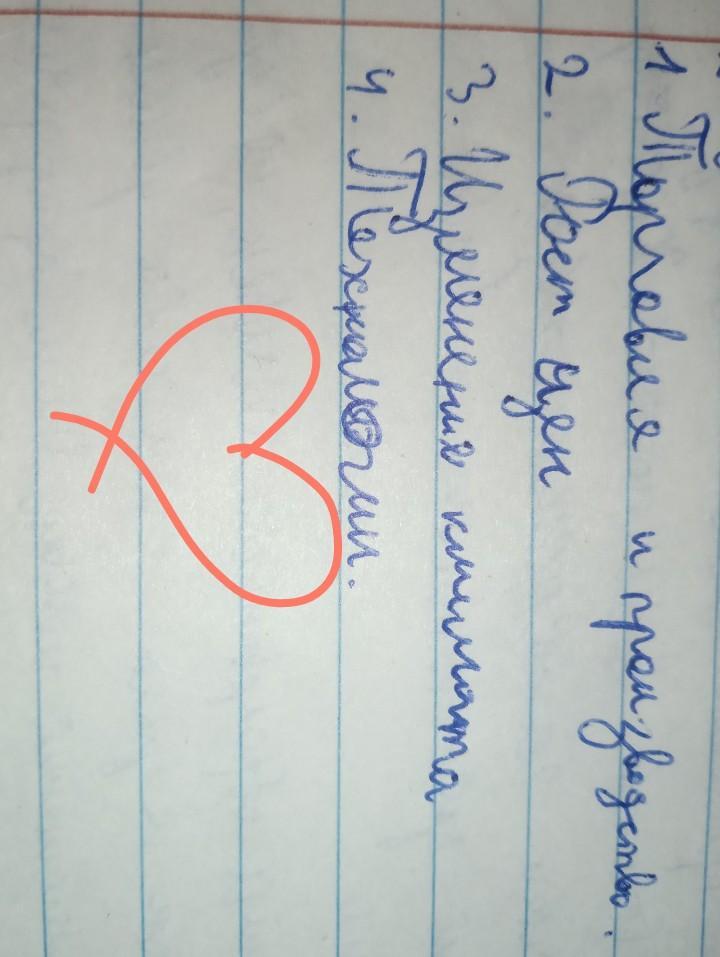 1 Торговля и производство.
2. Рост цен
3. Изменения климата
4. Технологии.